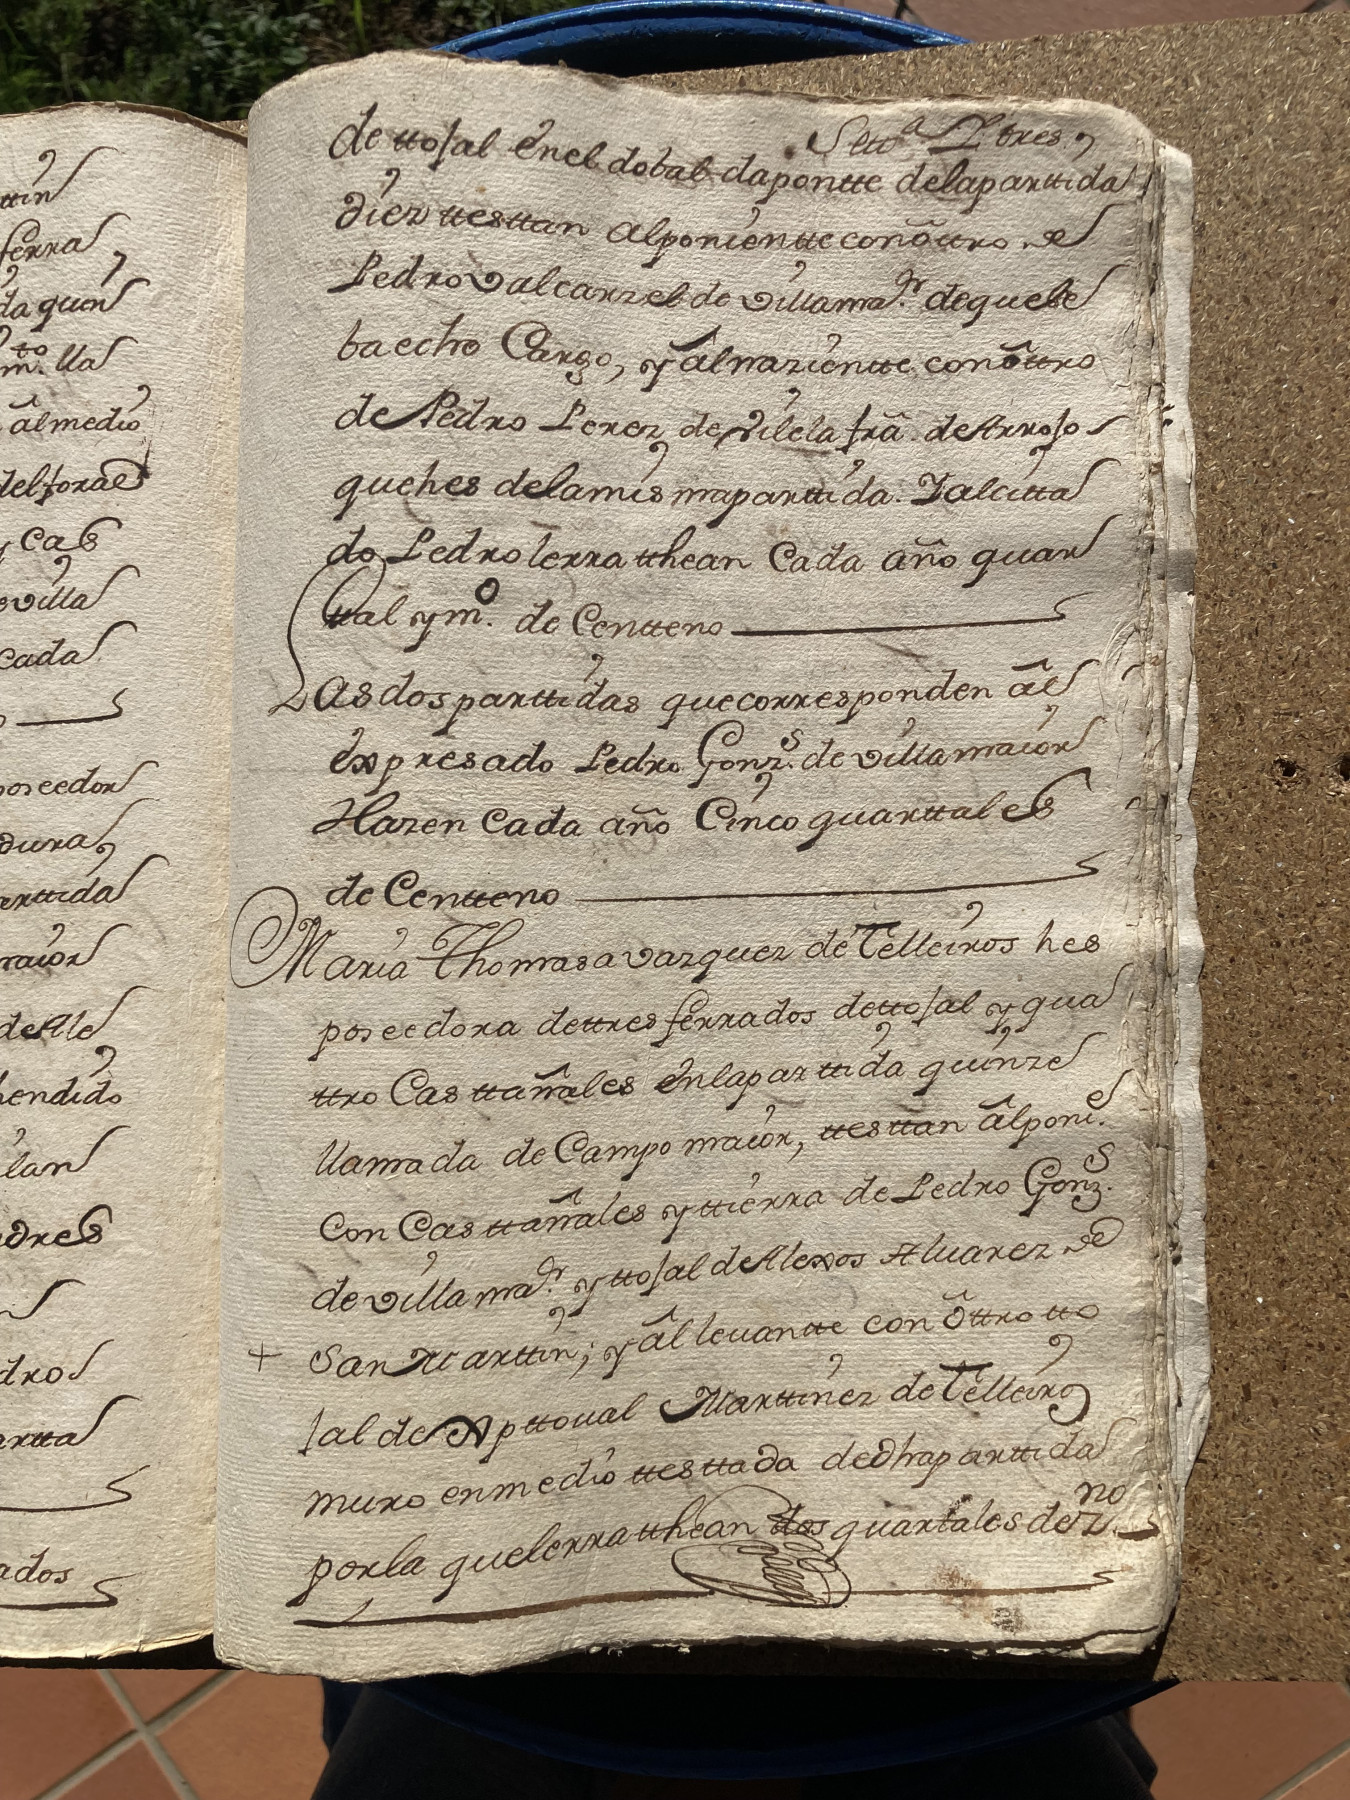 ttin
ferra
da quin
m.to lla
âl medio
del forae
y cas
villa
cada
poseedor
dura
arttida
maior
de Ale
hendido
lan
adres
dro
artta
ados
Sett.a I tres,
de ttosal en el dobal da pontte de la parttida
diez ttesttan al ponientte con ôttro de
Pedro Valcarzel de villama.or de que le
ba echo Cargo, y âl nazientte con ôttro
de Pedro Perez de Vilela frã. de Arroso
que hes de la misma parttida. Y al citta
do Pedro lerratthean Cada año quar
ttal y m.o de Centteno
Las dos parttidas que corresponden âl
expresado Pedro Gonz.s de villamaior
Hazen Cada año Cinco quarttales
de Centteno
Maria Thomasa Vazquez de Telleiros hes
poseedora de ttres ferrados de ttosal y qua
ttro Casttañales en la parttida quinze
llamada de Campo maior, ttesttan âl poni.e
Con Casttañales y ttierra de Pedro Gonz.s
de villama.or y ttosal de Alexos Alvarez de
+ San Marttin; y âl levantte con ôttro tto
sal de Xpttoval Marttinez de Telleiro
muro en medio ttesttada de dha parttida
por la que lerratthean dos quartales de z.no